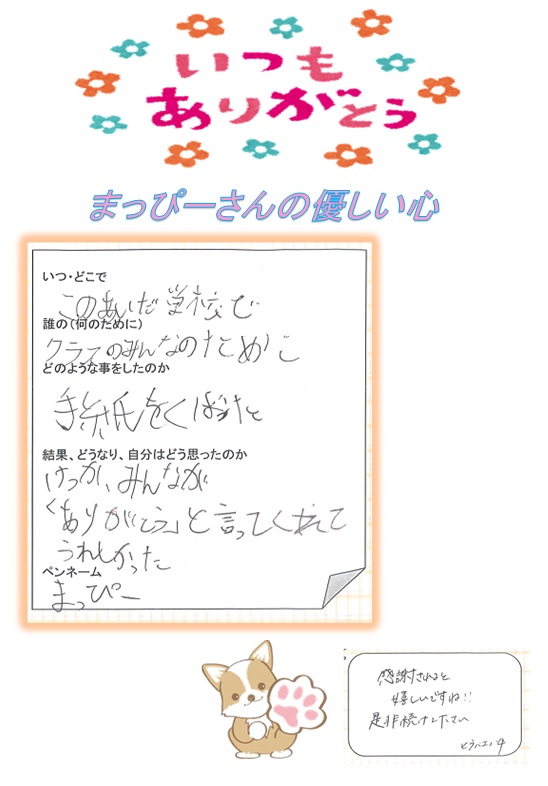 いつも
ありがとう
まっぴーさんの優しい心
いつ・どこで
このあいだ学校で
誰の(何のために)
クラスのみんなのために
どのような事をしたのか
手紙をくばった
結果、どうなり、自分はどう思ったのか
けっか、みんなが
「ありがとう」と言ってくれて
うれしかった
ペンネーム
まっぴー
感謝されると
嬉しいですね!!
是非続けて下さい